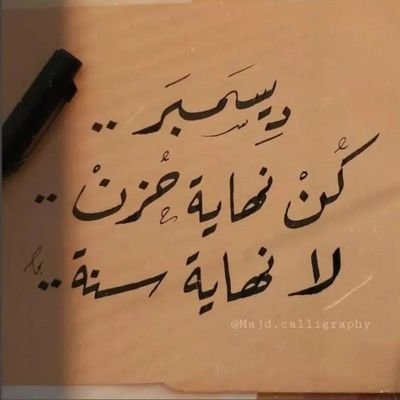 دِيسَمبَر ..
كُنْ نهاية حُزنْ ..
لا نهاية سنة ..
@Majd.calligraphy